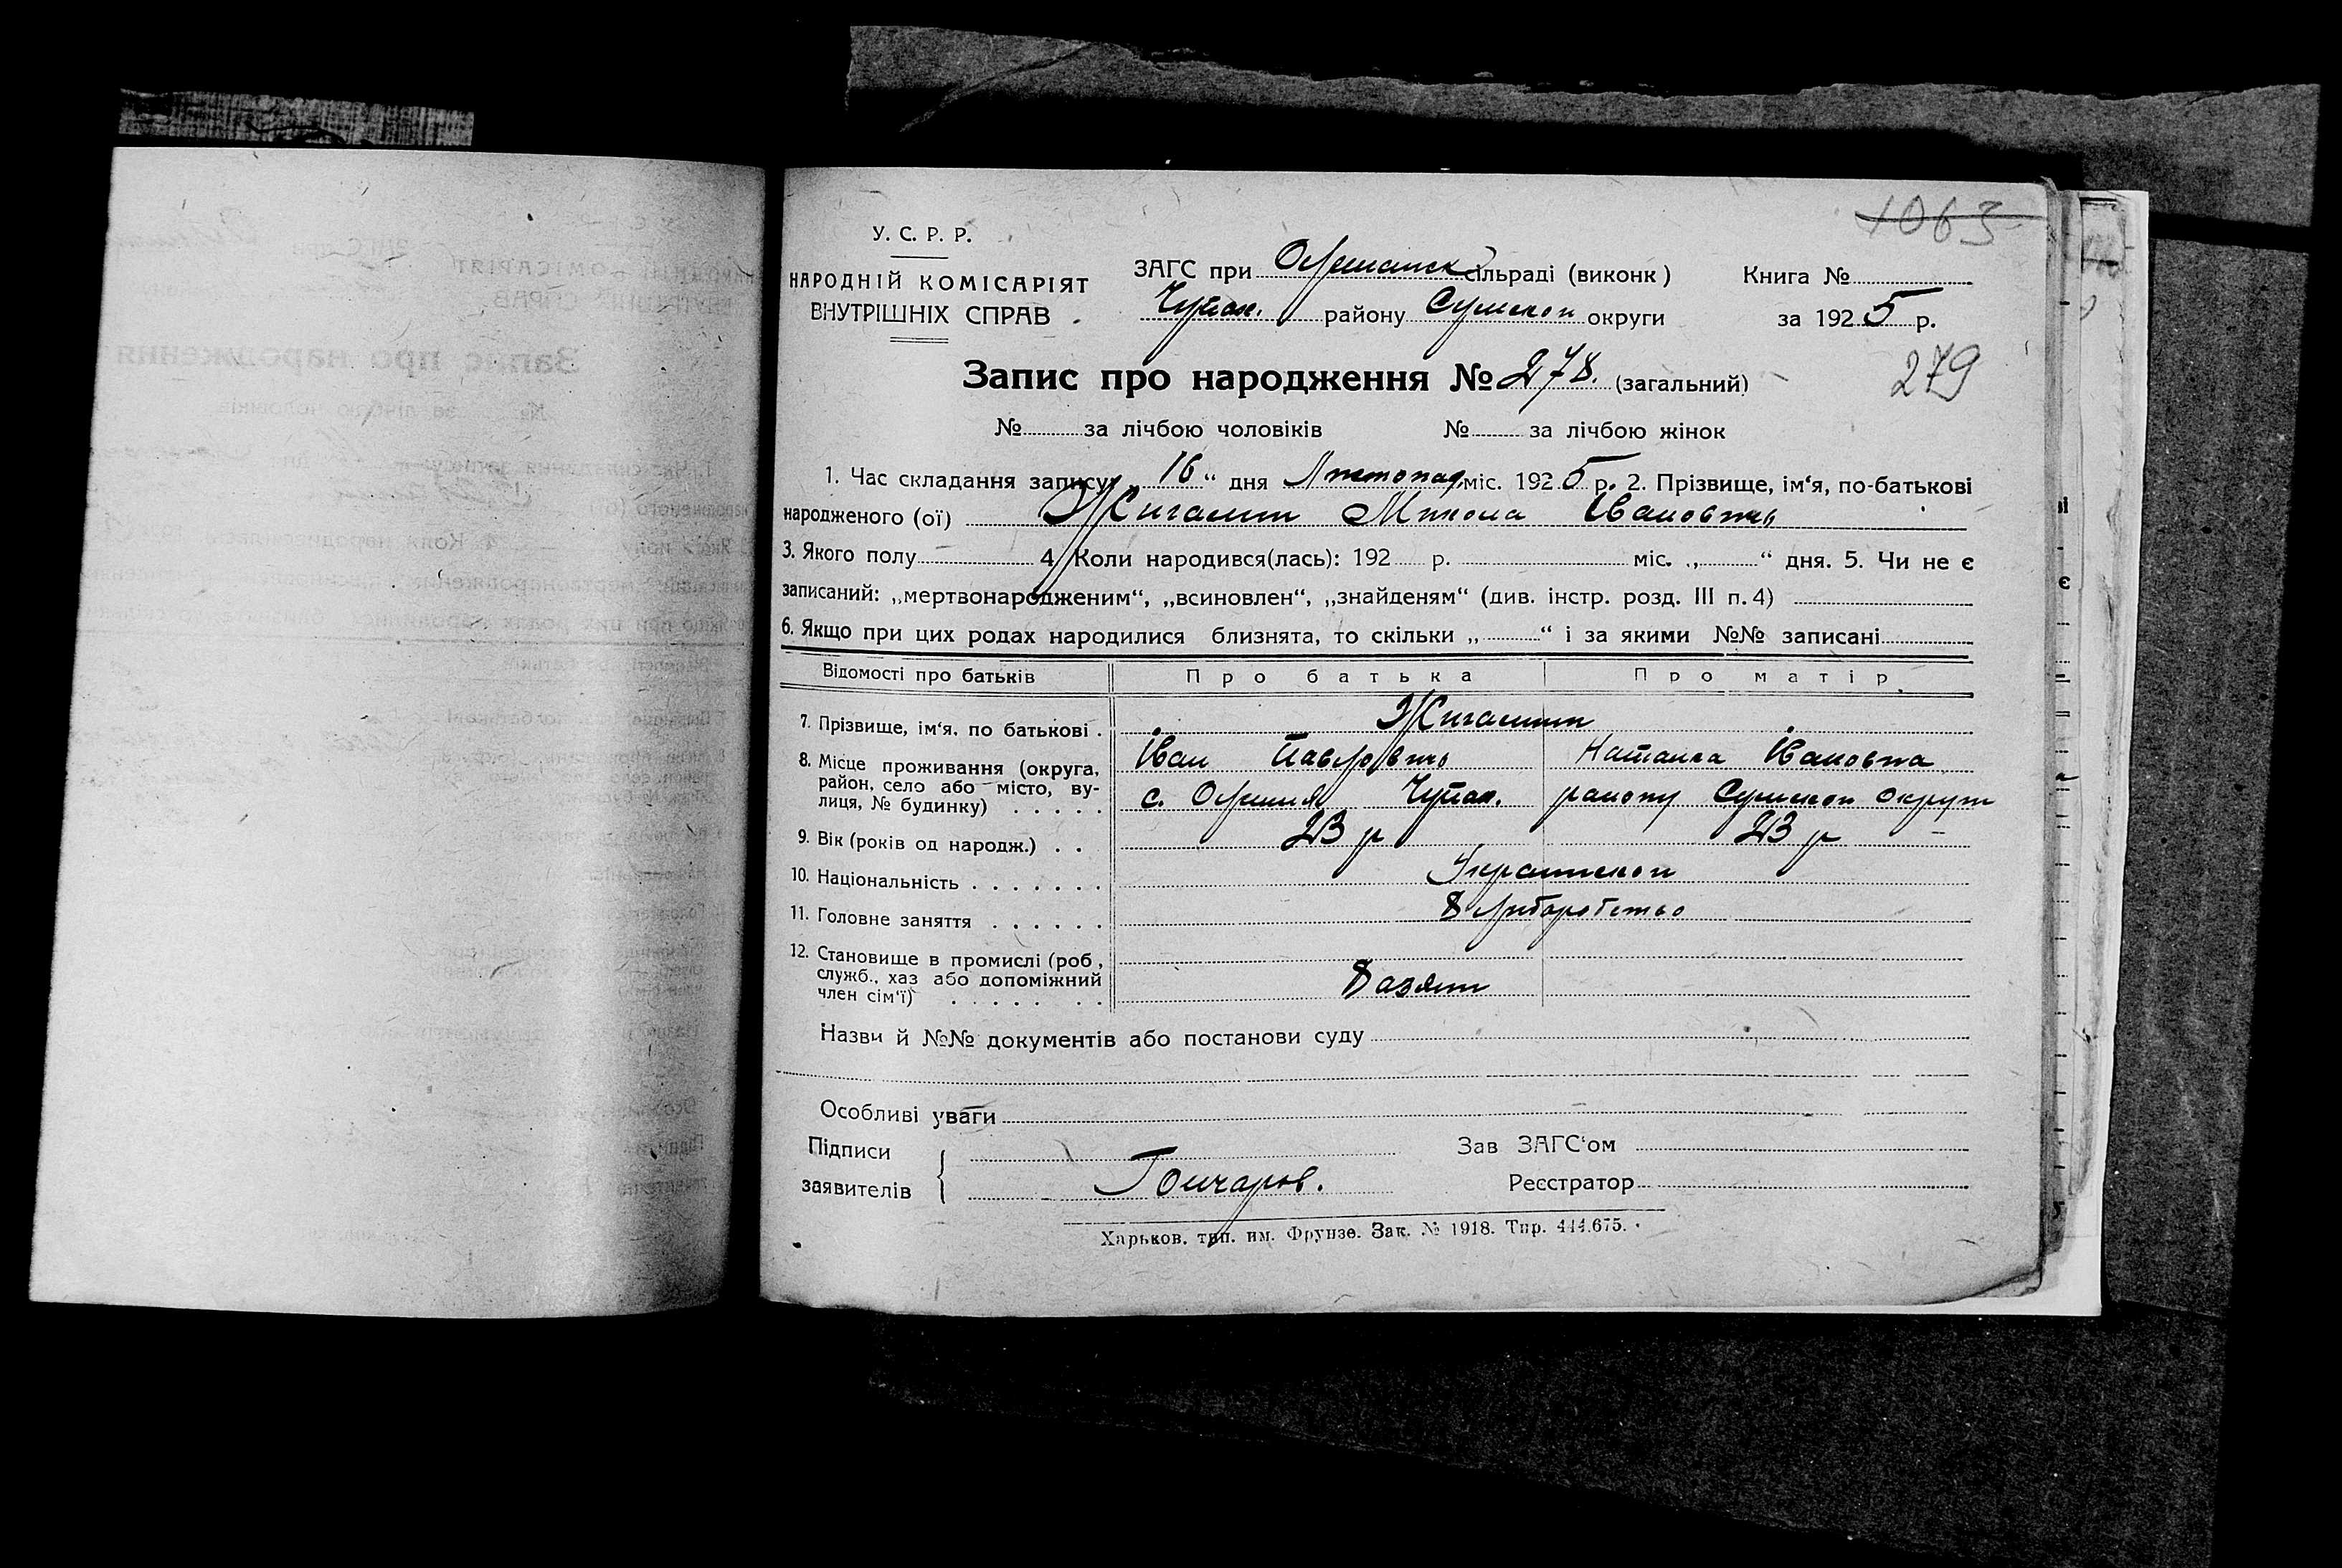 1063
У. С. Р. Р.
НАРОДНІЙ КОМІСАРІЯТ
ВНУТРІШНІХ СПРАВ
ЗАГС при Олешанск сільраді (виконк) Книга №
Чупах. району Сумської округи за 1925 р.
Запис про народження № 278. (загальний)
279
№ за лічбою чоловіків № за лічбою жінок
1. Час складання запису „16“ дня Листопад міс. 1925 р. 2. Прізвище, ім‘я, по-батькові
народженого (ої) Микола Іванович
3. Якого полу 4. Коли народився(лась): 192 р. міс. „ “ дня. 5. Чи не є
записаний: „мертвонародженим“, „всиновлен“, „знайденям“ (див. інстр. розд. III п. 4)
6. Якщо при цих родах народилися близнята, то скільки „ “ і за якими №№ записані
Відомості про батьків Про батька Про матір
7. Прізвище, ім‘я, по батькові .
Іван Павлович Наталка Івановна
8. Місце проживання (округа,
район, село або місто, ву-
лиця, № будинку) . . . . .
с. Олешня Чупах. району Сумскої округи
9. Вік (років од народж.) . . 23 р 23 р
10. Національність . . . . . . . Української
11. Головне заняття . . . . . . Хліборобство
12. Становище в промислі (роб,
служб., хаз або допоміжний
член сім‘ї) . . . . . . . Хазяїн
Назви й №№ документів або постанови суду
Особливі уваги
Підписи Зав ЗАГС‘ом
заявителів Гончаров. Реєстратор
Харьков. тип. им. Фрунзе. Зак. № 1918. Тир. 444.675.